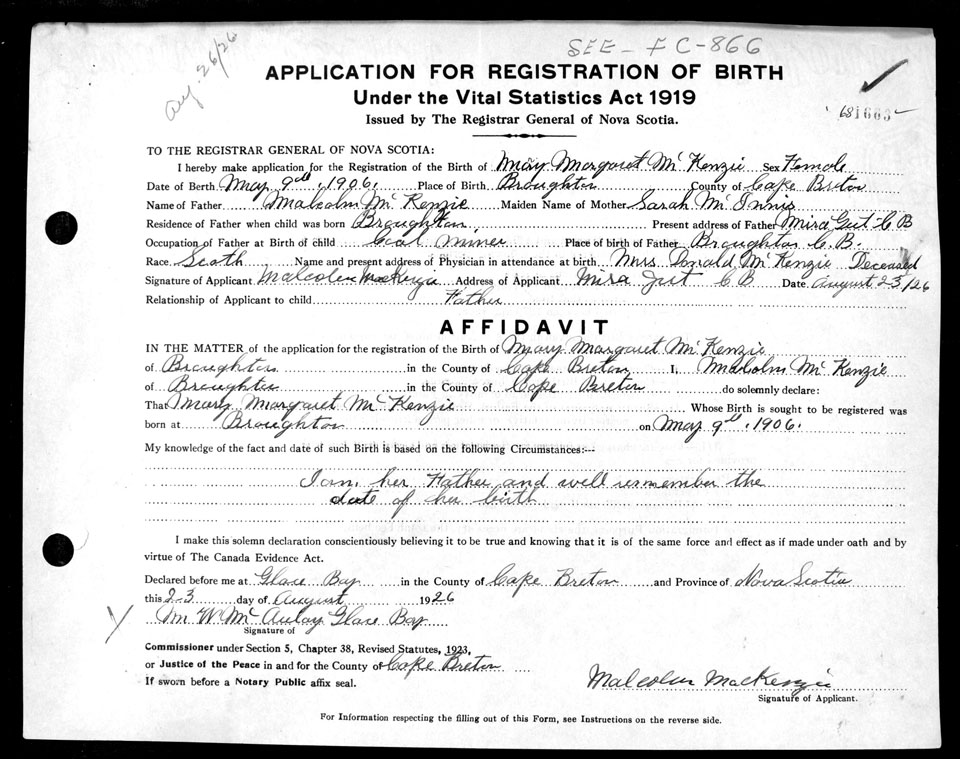 SEE - FC-866
Aug. 26/26
APPLICATION FOR REGISTRATION OF BIRTH
Under the Vital Statistics Act 1919
Issued by The Registrar General of Nova Scotia.
TO THE REGISTRAR GENERAL OF NOVA SCOTIA:
I hereby make application for the Registration of the Birth of Mary Margaret McKenzie Sex Female
Date of Berth May 9th, 1906. Place of Birth Broughton County of Cape Breton
Name of Father Malcolm McKenzie Maiden Name of Mother Sarah McInnis
Residence of Father when child was born Broughton, Present address of Father Mira Gut C B
Occupation of Father at Birth of child Coal Miner Place of birth of Father Broughton C. B.
Race Scoth Name and present address of Physician in attendance at birth. Mrs Donald McKenzie Deceased
Signature of Applicant Malcolm MacKenzie Address of Applicant Mira Gut C B Date August 23/26
Relationship of Applicant to child Father
AFFIDAVIT
IN THE MATTER of the application for the registration of the Birth of Mary Margaret McKenzie
of Broughton in the County of Cape Breton I, Malcolm McKenzie
of Broughton in the County of Cape Breton do solemnly declare:
That Mary Margaret McKenzie Whose Birth is sought to be registered was
born at Broughton on May 9th, 1906.
My knowledge of the fact and date of such Birth is based on the following Circumstances:--
I am, her Father, and well remember the
date of her birth
I make this solemn declaration conscientiously believing it to be true and knowing that it is of the same force and effect as if made under oath and by
virtue of The Canada Evidence Act.
Declared before me at Glace Bay in the County of Cape Breton and Province of Nova Scotia
this 23 day of August 1926
Wm W McAulay Glace Bay
Signature of
Commissioner under Section 5, Chapter 38, Revised Statutes, 1923,
or Justice of the Peace in and for the County of Cape Breton
If sworn before a Notary Public affix seal.
Malcolm MacKenzie
Signature of Applicant.
For Information respecting the filling out of this Form, see Instructions on the reverse side.